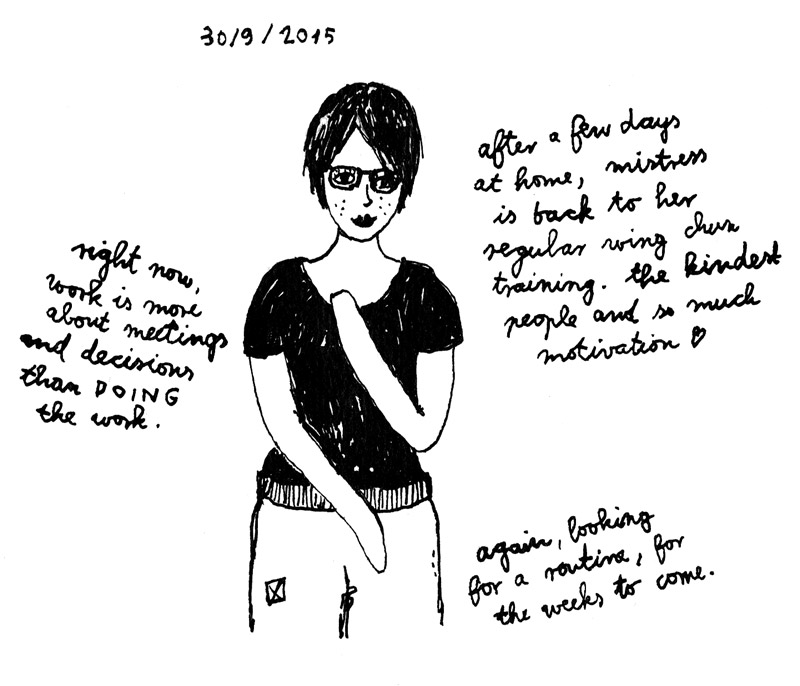 30/9/2015
after a few days
at home, mistress
is back to her
regular wing chun
training. the kindest
people and so much
motivation ♡
right now,
work is more
about meetings
and decisions
than DOING
the work.
again, looking
for a routine, for
the weeks to come.